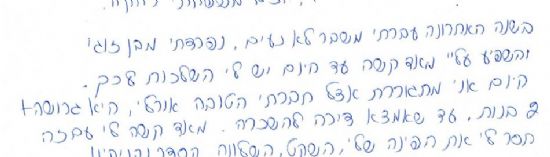 בשנה האחרונה עברתי משבר לא נעים, נפרדתי מבן זוגי
והשפיע עליי מאוד קשה עד היום יש לי השלכות לכך.
היום אני מתגוררת אצל חברתי הטובה אורלי, היא גרושה+
2 בנות, עד שאמצא דירה להשכרה. מאוד קשה לי עם זה
חסר לי את הפינה שלי, השקט, השלווה הסדר והניקיון